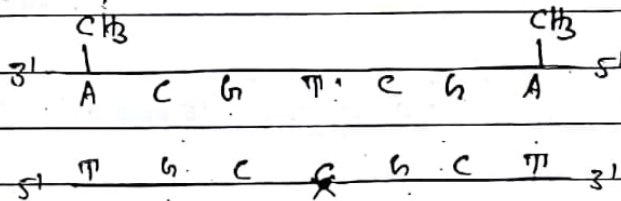 CH3 CH3
3' A C G T C G A 5'
5' T G C C G C T 3'